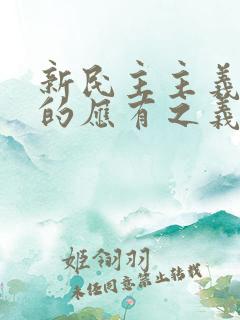 新民主主义
的应有之义
姬翎羽
未经同意禁止转载